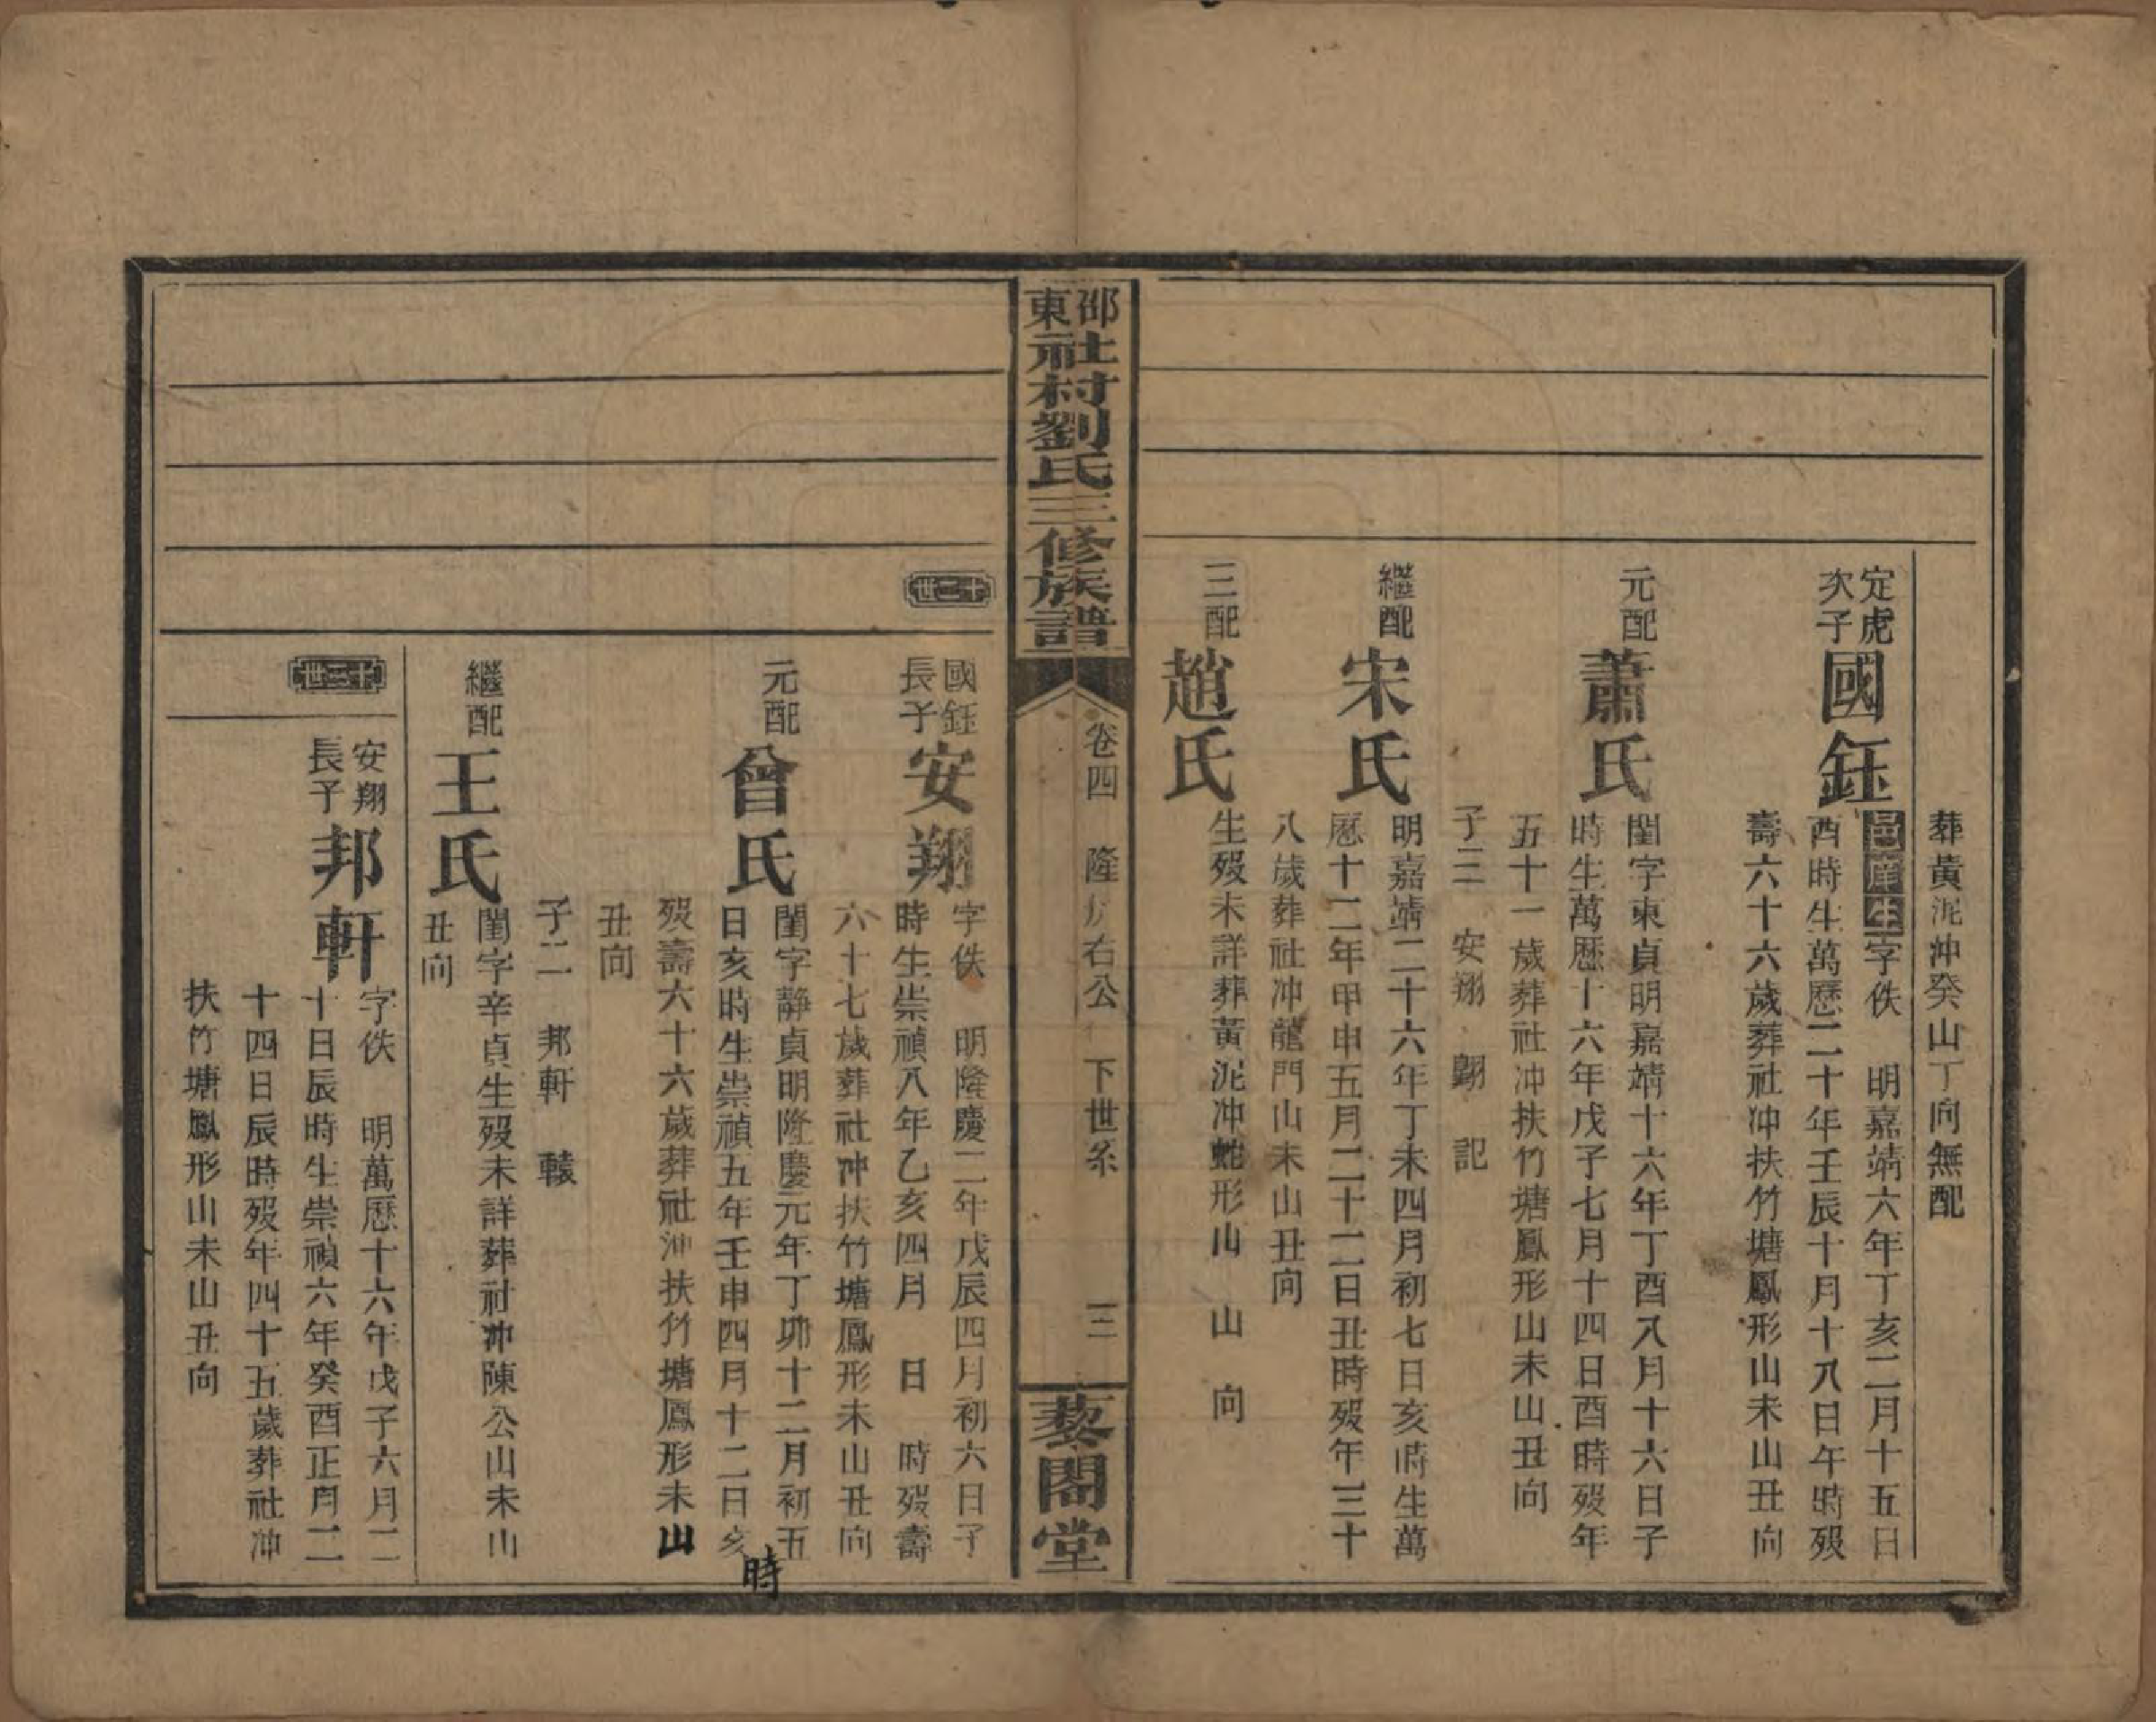 葬黃泥冲癸山丁向無配
定虎
次子
國鈺
邑庠生字佚　明嘉靖六年丁亥二月十五日
酉時生萬歷二十年壬辰十月十八日午時歿
壽六十六歲葬社冲扶竹塘鳳形山未山丑向
元配
蕭氏
閨字東貞明嘉靖十六年丁酉八月十六日子
時生萬歷十六年戊子七月十四日酉時歿年
五十一歲葬社冲扶竹塘鳳形山未山丑向
子三　安翔　翾　記
繼配
宋氏
明嘉靖二十六年丁未四月初七日亥時生萬
歷十二年甲申五月二十二日丑時歿年三十
八歲葬社冲龍門山未山丑向
三配
趙氏
生歿未詳葬黃泥冲蛇形山　山　向
邵東社村劉氏三修族譜
卷四　隆　右公　下世系　三
藜閣堂
十二世
國鈺
長子
安翔
字佚　明隆慶二年戊辰四月初六日子
時生崇禎八年乙亥四月　日　時歿壽
六十七歲葬社冲扶竹塘鳳形未山丑向
元配
曾氏
閨字靜貞明隆慶元年丁卯十二月初五
日亥時生崇禎五年壬申四月十二日亥時
歿壽六十六歲葬社冲扶竹塘鳳形未山
丑向
子二　邦軒　轅
繼配
王氏
閨字辛貞生歿未詳葬社冲陳公山未山
丑向
十三世
安翔
長子
邦軒
字佚　明萬歷十六年戊子六月二
十日辰時生崇禎六年癸酉正月二
十四日辰時歿年四十五歲葬社冲
扶竹塘鳳形山未山丑向